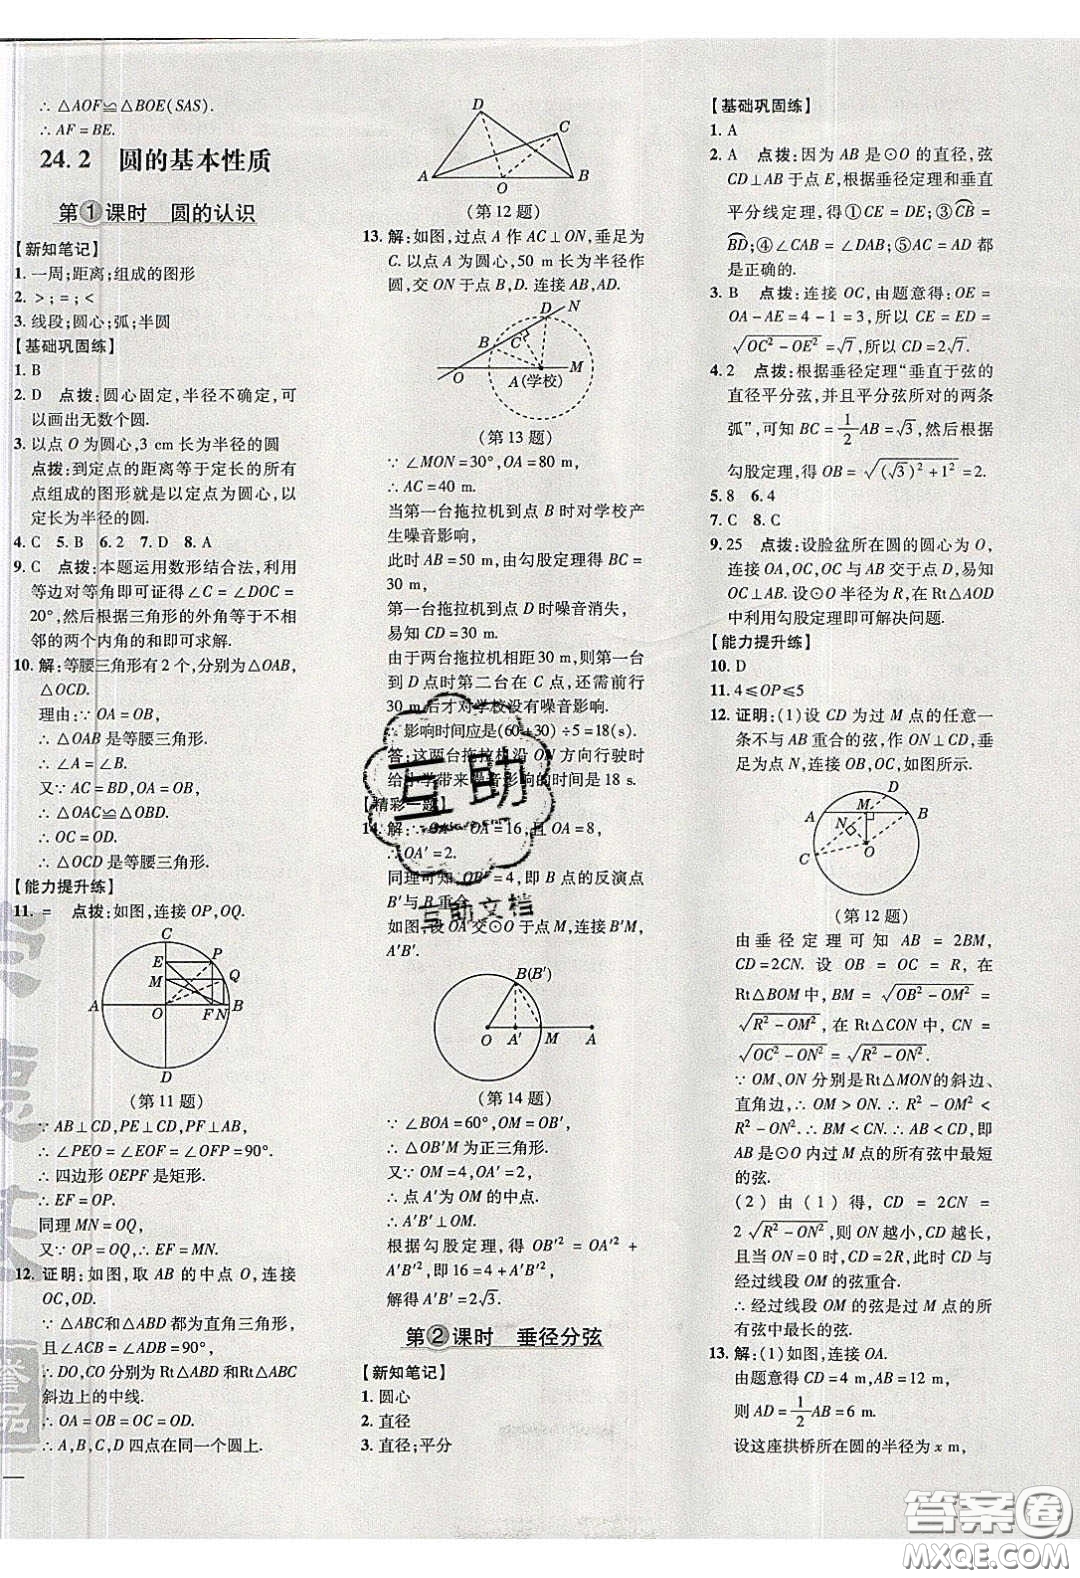 ∴ △AOF≌△BOE(SAS).
∴ AF=BE.
24.2 圆的基本性质
第1课时 圆的认识
【新知笔记】
1. 一周;距离;组成的图形
2. >;=;<
3. 线段;圆心;弧;半圆
【基础巩固练】
1. B
2. D 点拨:圆心固定,半径不确定,可
以画出无数个圆.
3. 以点 O 为圆心,3 cm 长为半径的圆
点拨:到定点的距离等于定长的所有
点组成的图形就是以定点为圆心,以
定长为半径的圆.
4. C 5. B 6. 2 7. D 8. A
9. C 点拨:本题运用数形结合法,利用
等边对等角即可证得∠C=∠DOC=
20°,然后根据三角形的外角等于不相
邻的两个内角的和即可求解.
10. 解:等腰三角形有 2 个,分别为△OAB,
△OCD.
理由:∵ OA=OB,
∴ △OAB 是等腰三角形.
∴ ∠A=∠B.
又∵ AC=BD,OA=OB,
∴ △OAC≌△OBD.
∴ OC=OD.
∴ △OCD 是等腰三角形.
【能力提升练】
11. = 点拨:如图,连接 OP,OQ.
C
E P
M Q
A O F N B
D
(第 11 题)
∵ AB⊥CD,PE⊥CD,PF⊥AB,
∴ ∠PEO=∠EOF=∠OFP=90°.
∴ 四边形 OEPF 是矩形.
∴ EF=OP.
同理 MN=OQ,
又∵ OP=OQ,∴ EF=MN.
12. 证明:如图,取 AB 的中点 O,连接
OC,OD.
∵ △ABC和△ABD 都为直角三角形,
且∠ACB=∠ADB=90°,
∴ DO,CO 分别为 Rt△ABD和Rt△ABC
斜边上的中线.
∴ OA=OB=OC=OD.
∴ A,B,C,D 四点在同一个圆上.
D
C
A O B
(第 12 题)
13. 解:如图,过点 A 作 AC⊥ON,垂足为
C. 以点 A 为圆心,50 m 长为半径作
圆,交 ON 于点 B,D. 连接 AB,AD.
D N
B C
O A(学校) M
(第 13 题)
∵ ∠MON=30°,OA=80 m,
∴ AC=40 m.
当第一台拖拉机到点 B 时对学校产
生噪音影响,
此时 AB=50 m,由勾股定理得 BC=
30 m,
第一台拖拉机到点 D 时噪音消失,
易知 CD=30 m.
由于两台拖拉机相距30 m,则第一台
到 D 点时第二台在 C 点,还需前行
30 m后才对学校没有噪音影响.
∴ 影响时间应是(60+30)÷5=18(s).
答:这两台拖拉机沿 ON 方向行驶时
给小学带来噪音影响的时间是 18 s.
【精彩一题】
14. 解:∵ OA′·OA=16,且 OA=8,
∴ OA′=2.
同理可知,OB′=4,即 B 点的反演点
B′与 B 重合.
如图,设 OA 交⊙O 于点 M,连接 B′M,
A′B′.
B(B′)
O A′ M A
(第 14 题)
∵ ∠BOA=60°,OM=OB′,
∴ △OB′M 为正三角形.
又∵ OM=4,OA′=2,
∴ 点 A′为 OM 的中点.
∴ A′B′⊥OM.
根据勾股定理,得 OB′²=OA′²+
A′B′²,即 16=4+A′B′².
解得 A′B′=2√3.
第2课时 垂径分弦
【新知笔记】
1. 圆心
2. 直径
3. 直径;平分
【基础巩固练】
1. A
2. A 点拨:因为 AB 是⊙O 的直径,弦
CD⊥AB 于点 E,根据垂径定理和垂直
平分线定理,得①CE=DE;③C͡B=
B͡D;④∠CAB=∠DAB;⑤AC=AD 都
是正确的.
3. B 点拨:连接 OC,由题意得:OE=
OA-AE=4-1=3,所以 CE=ED=
√(OC²-OE²)=√7,所以 CD=2√7.
4. 2 点拨:根据垂径定理“垂直于弦的
直径平分弦,并且平分弦所对的两条
弧”,可知 BC=1/2AB=√3,然后根据
勾股定理,得 OB=√((√3)²+1²)=2.
5. 8 6. 4
7. C 8. C
9. 25 点拨:设脸盆所在圆的圆心为 O,
连接 OA,OC,OC 与 AB 交于点 D,易知
OC⊥AB. 设⊙O 半径为 R,在 Rt△AOD
中利用勾股定理即可解决问题.
【能力提升练】
10. D
11. 4≤OP≤5
12. 证明:(1)设 CD 为过 M 点的任意一
条不与 AB 重合的弦,作 ON⊥CD,于
垂足为点 N,连接 OB,OC,如图所示.
D
A M B
N
C O
(第 12 题)
由垂径定理可知 AB=2BM,
CD=2CN. 设 OB=OC=R,在
Rt△BOM 中,BM=√(OB²-OM²)=
√(R²-OM²),在 Rt△CON 中,CN=
√(OC²-ON²)=√(R²-ON²).
∵ OM、ON 分别是Rt△MON的斜边、
直角边,∴ OM>ON. ∴ R²-OM²<
R²-ON². ∴ BM<CN. ∴ AB<CD,即
AB 是⊙O 内过 M 点的所有弦中最短
的弦.
(2)由(1)得,CD=2CN=
2√(R²-ON²),则 ON 越小,CD 越长,
且当 ON=0 时,CD=2R,此时 CD 与
经过线段 OM 的弦重合.
∴ 经过线段 OM 的弦是过 M 点的所
有弦中最长的弦.
13. 解:(1)如图,连接 OA.
由题意得 CD=4 m,AB=12 m,
则 AD=1/2AB=6 m,
设这座拱桥所在圆的半径为 x m,
互助
互助文档
答案圈
MXQE.COM